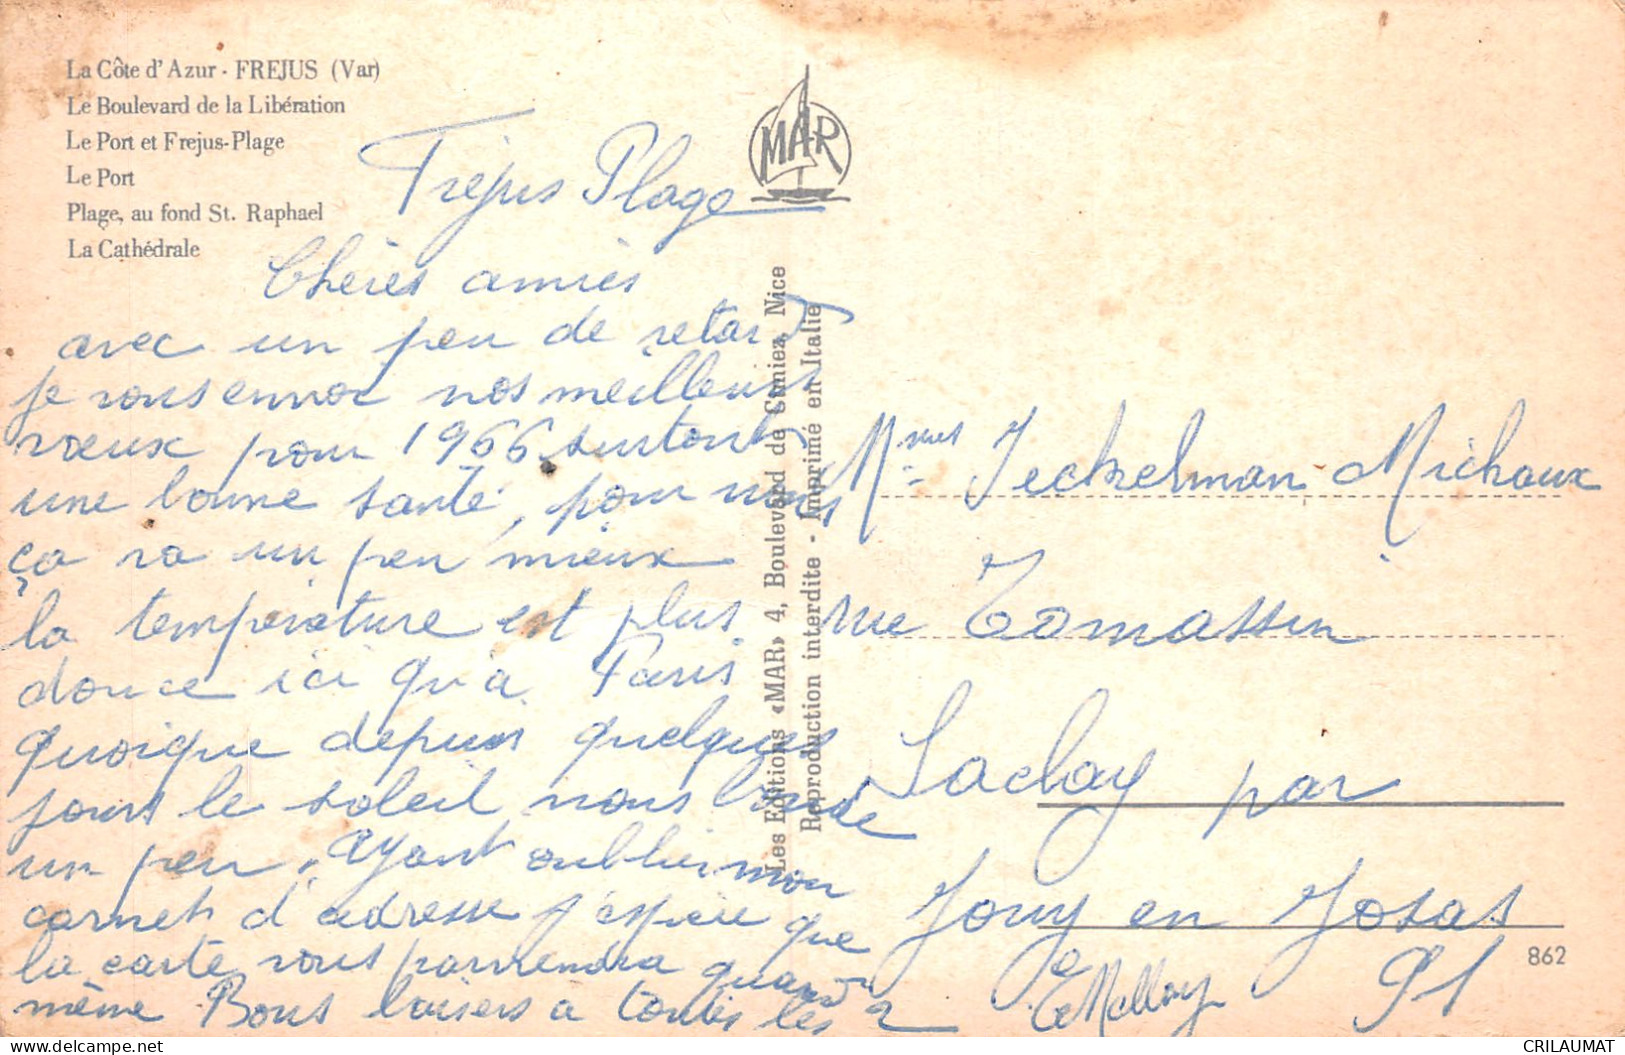 La Côte d'Azur - FREJUS (Var)
Le Boulevard de la Libération
Le Port et Frejus-Plage
Le Port
Plage, au fond St. Raphael
La Cathédrale
MAR
Les Editions «MAR» 4, Boulevard de Cimiez, Nice
Reproduction interdite - Imprimé en Italie
Frejus Plage
Chères amies
avec un peu de retard
je vous envoie nos meilleurs
voeux pour 1966 surtout
une bonne santé, pour nous
ça va un peu mieux
la température est plus
douce ici qu'a Paris
quoique depuis quelques
jours le soleil nous boude
un peu. Ayant oublier mon
carnet d'adresse j'espère que
la carte vous parviendra quand
même Bons baisers a toutes les 2
Mmes Jeckelman Michaux
rue Tomassin
Saclay par
Jouy en Josas
91
862
CRILAUMAT